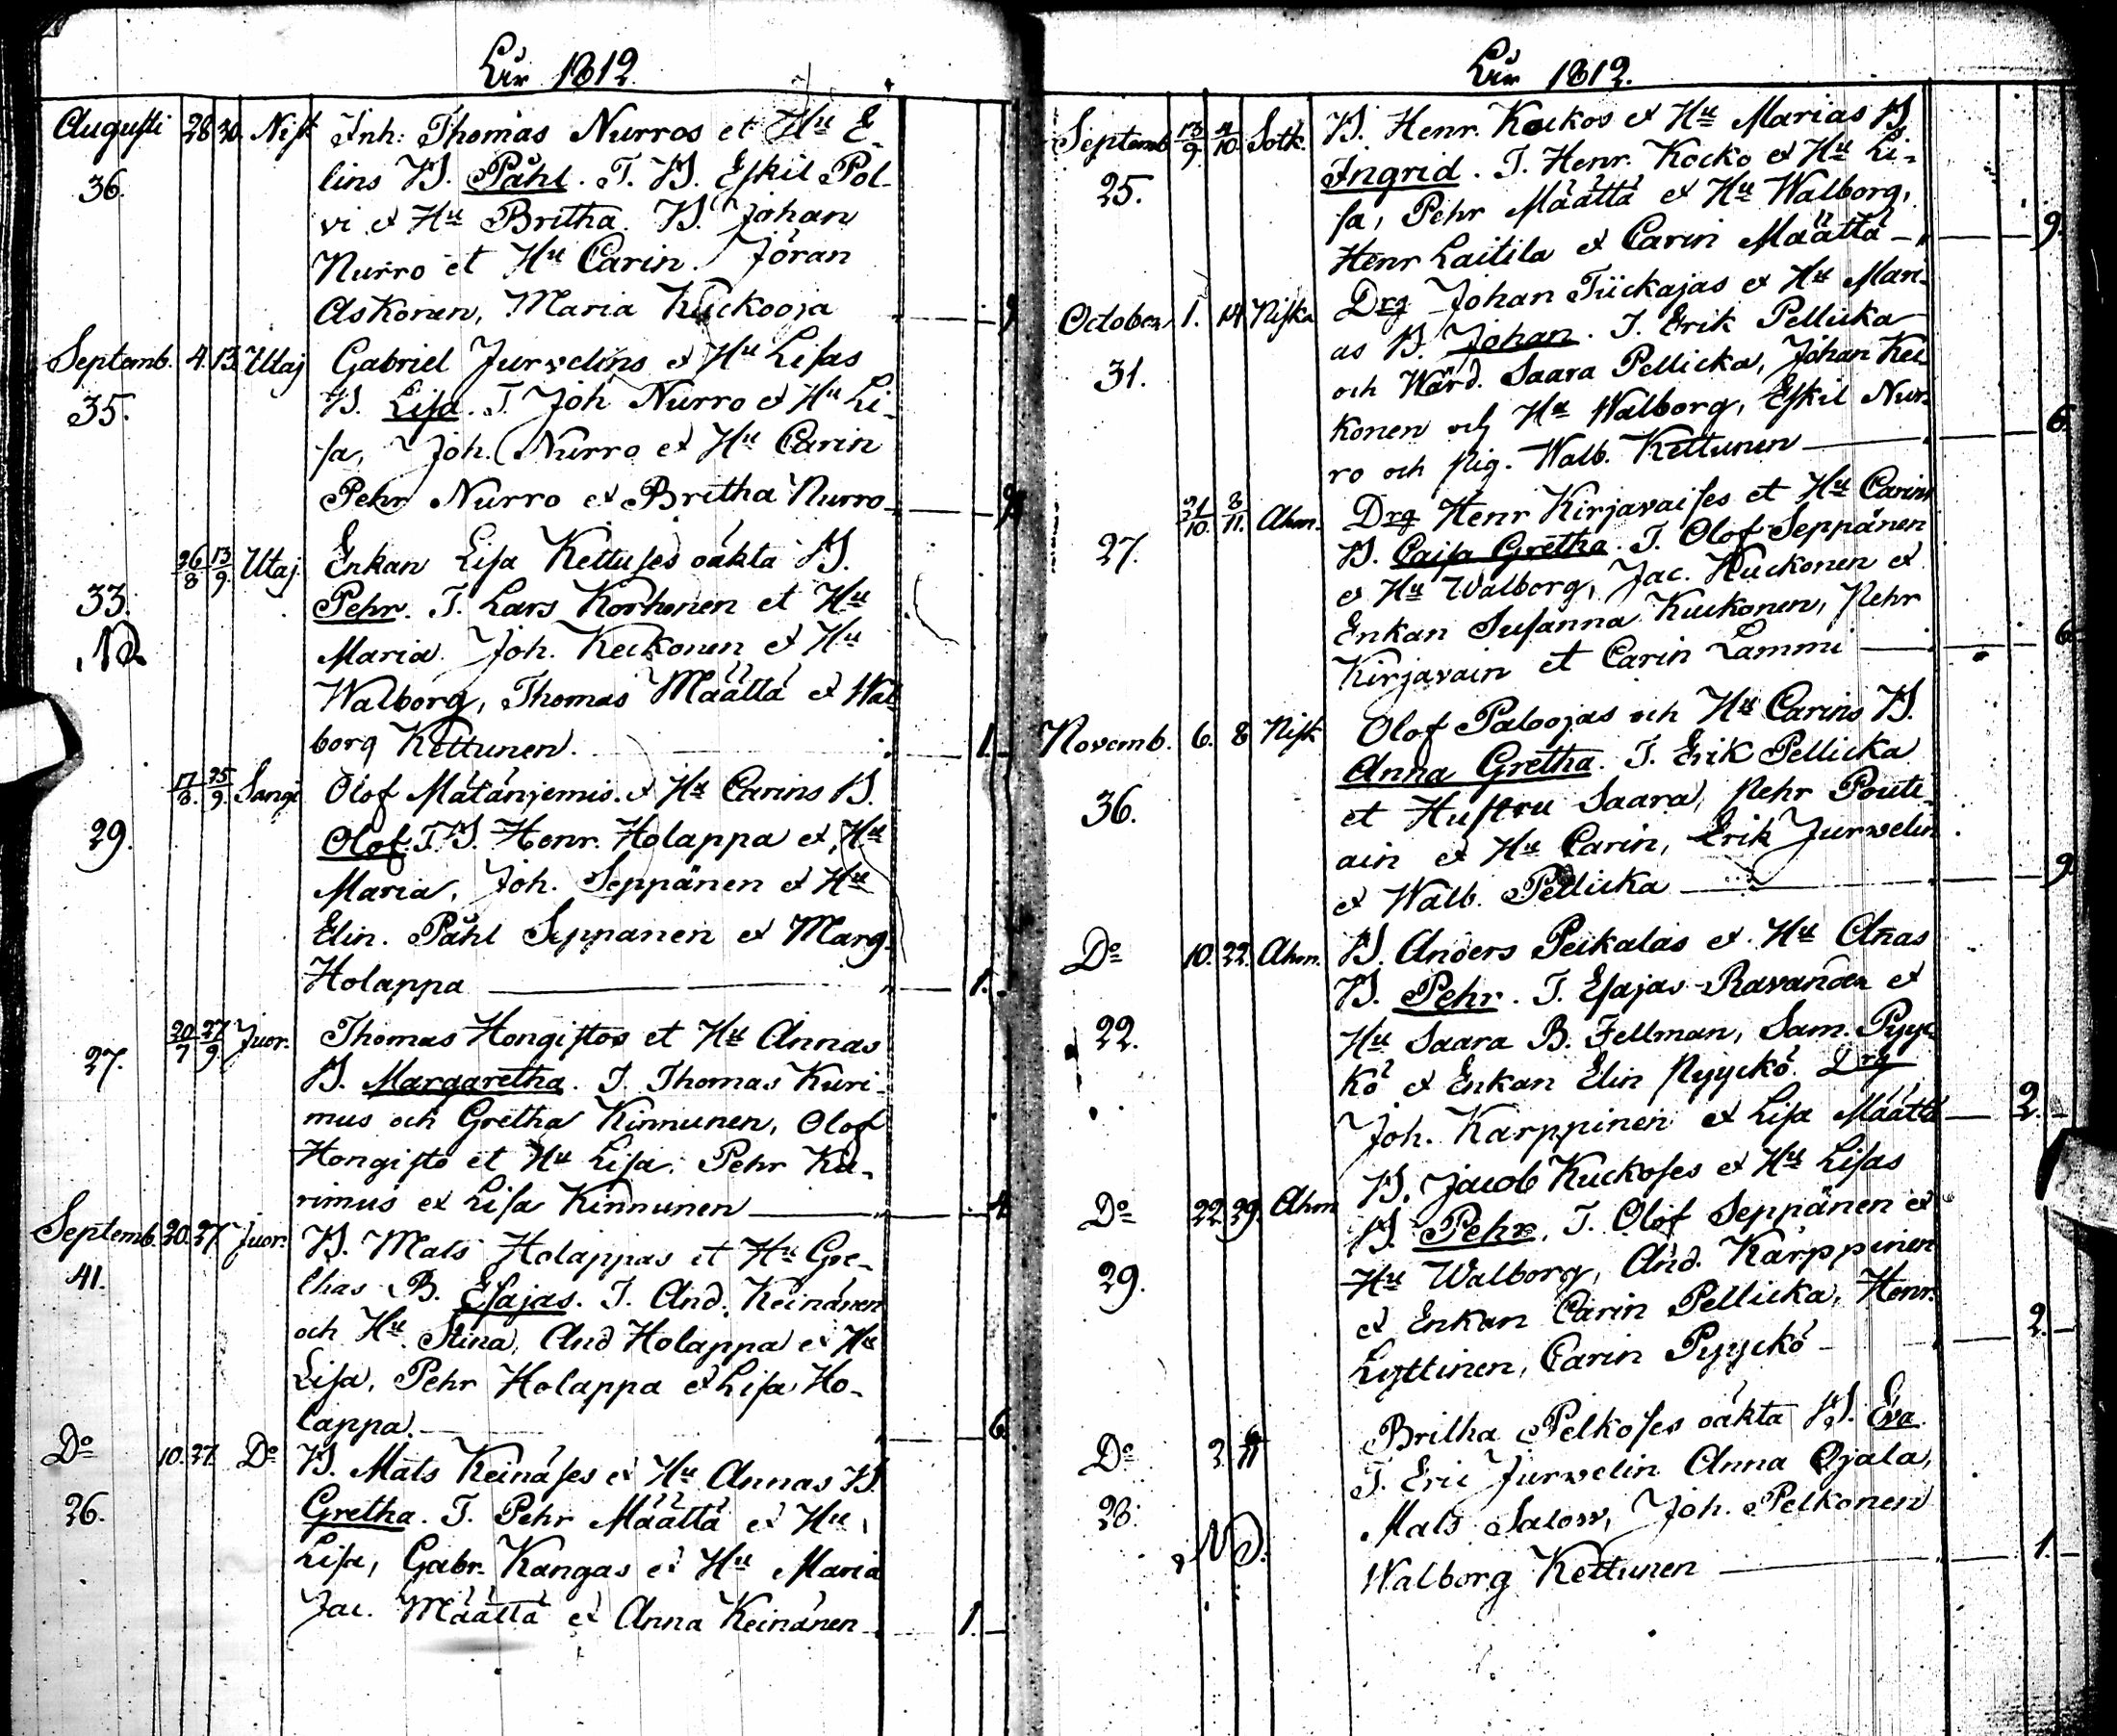 År 1812.
Augusti 28 30. Nisk Inh: Thomas Nurros et Hu E-
36. lins B. Påhl. T. B. Eskil Pol-
vi et Hu Britha. B. Johan
Nurro et Hu Carin. Jöran
Askonen, Maria Kuckooja 9
Septemb. 4. 13. Utaj Gabriel Jurvelins et Hu Lisas
35. B. Lisa. T. Joh Nurro et Hu Li-
sa, Joh. Nurro et Hu Carin
Pehr Nurro et Britha Nurro
26/8 13/9 Utaj. Enkan Lisa Kettuses oäkta B.
33. Pehr. T. Lars Korhonen et Hu
Maria. Joh. Keckonen et Hu
Walborg, Thomas Määttä et Wal-
borg Kettunen. 1.
17/8. 25/9. Sangi Olof Mätänjemis. et Hu Carins B.
29. Olof. T. B. Henr. Holappa et Hu
Maria, Joh. Seppänen et Hu
Elin. Påhl Seppänen et Marg.
Holappa 1.
20/7 27/9 Juor. Thomas Hongistos et Hu Annas
27. B. Margaretha. T. Thomas Kuri-
mus och Gretha Kinnunen, Olof
Hongisto et Hu Lisa. Pehr Ku-
rimus et Lisa Kinnunen 4
Septemb. 20. 27. Juor. B. Mats Holappas et Hu Gre-
41. thas B. Esajas. T. And. Keinänen
och Hu Stina, And Holappa et Hu
Lisa, Pehr Holappa et Lisa Ho-
lappa. 6
Do 10. 27. Do B. Mats Keinäses et Hu Annas B.
26. Gretha. T. Pehr Määttä et Hu
Lisa, Gabr. Kangas et Hu Maria
Jac. Määttä et Anna Keinänen 1.
År 1812.
Septemb 13/9. 4/10. Sotk. B. Henr. Kockos et Hu Marias B.
25. Ingrid. T. Henr. Kocko et Hu Li-
sa, Pehr Määttä et Hu Walborg,
Henr Laitila et Carin Määttä 9.
October 1. 14. Niska Drg Johan Tuckajas et Hu Mari-
as B. Johan. T. Erik Pellicka
31. och Wärd. Saara Pellicka, Johan Kec-
konen och Hu Walborg, Eskil Nur-
ro och pig. Walb. Kettunen 6.
21/10. 8/11. Ahm. Drg Henr Kirjavaises et Hu Carins
27. B. Caisa Gretha. T. Olof Seppänen
et Hu Walborg, Jac. Kuckonen et
Enkan Susanna Kuckonen, Pehr
Kirjavain et Carin Lammi 6.
Novemb. 6. 8 Nisk Olof Paloojas och Hu Carins B.
Anna Gretha. T. Erik Pellicka
36. et Hustru Saara, Pehr Pouti-
ain et Hu Carin, Erik Jurvelin
et Walb. Pellicka 9.
Do 10. 22. Ahm. B. Anders Peikalas et Hu Annas
B. Pehr. T. Esajas Ravander et
22. Hu Saara B. Fellman, Sam. Pyyc-
kö et Enkan Elin Pyyckö. Drg
Joh. Karppinen et Lisa Määttä 2.
B. Jacob Kuckoses et Hu Lisas
Do 22. 29. Ahm B. Pehr, T. Olof Seppänen et
29. Hu Walborg, And. Karppinen
et Enkan Carin Pellicka, Henr.
Lyttinen, Carin Pyyckö 2.
Britha Pelkoses oäkta B. Eva.
Do 2. T. Eric Jurvelin Anna Ojala,
28. Mats Salow, Joh. Pelkonen
Walborg Kettunen 1.